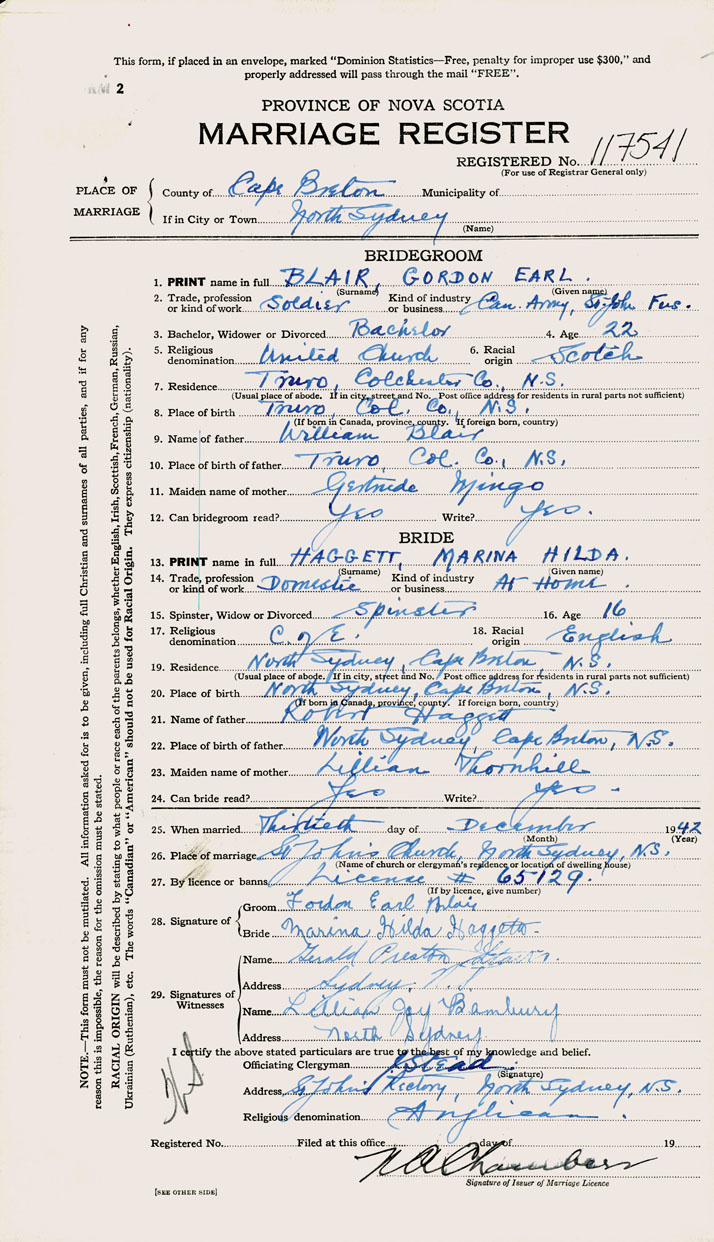 This form, if placed in an envelope, marked "Dominion Statistics—Free, penalty for improper use $300," and
properly addressed will pass through the mail "FREE".
2
PROVINCE OF NOVA SCOTIA
MARRIAGE REGISTER
REGISTERED No. 117541
(For use of Registrar General only)
PLACE OF MARRIAGE
County of Cape Breton Municipality of
If in City or Town North Sydney
(Name)
BRIDEGROOM
1. PRINT name in full BLAIR, GORDON EARL.
(Surname) (Given name)
2. Trade, profession or kind of work Soldier Kind of industry or business Can. Army, St John Fus.
3. Bachelor, Widower or Divorced Bachelor 4. Age 22
5. Religious denomination United Church 6. Racial origin Scotch
7. Residence Truro, Colchester Co., N.S.
(Usual place of abode. If in city, street and No. Post office address for residents in rural parts not sufficient)
8. Place of birth Truro, Col. Co., N.S.
(If born in Canada, province, county. If foreign born, country)
9. Name of father William Blair
10. Place of birth of father Truro, Col. Co., N.S.
11. Maiden name of mother Gertrude Mingo
12. Can bridegroom read? Yes Write? Yes.
BRIDE
13. PRINT name in full HAGGETT, MARINA HILDA.
(Surname) (Given name)
14. Trade, profession or kind of work Domestic Kind of industry or business At Home.
15. Spinster, Widow or Divorced Spinster 16. Age 16
17. Religious denomination C. of E. 18. Racial origin English
19. Residence North Sydney, Cape Breton, N.S.
(Usual place of abode. If in city, street and No. Post office address for residents in rural parts not sufficient)
20. Place of birth North Sydney, Cape Breton, N.S.
(If born in Canada, province, county. If foreign born, country)
21. Name of father Robert Haggett
22. Place of birth of father North Sydney, Cape Breton, N.S.
23. Maiden name of mother Lillian Thornhill
24. Can bride read? Yes Write? Yes.
25. When married Thirtieth day of December 1942
(Month) (Year)
26. Place of marriage St John's Church, North Sydney, N.S.
(Name of church or clergyman's residence or location of dwelling house)
27. By licence or banns License # 65129.
(If by licence, give number)
28. Signature of
Groom Gordon Earl Blair
Bride Marina Hilda Haggett
29. Signatures of Witnesses
Name Gerald Preston
Address Sydney, N.S.
Name Lillian Joy Bambury
Address North Sydney
I certify the above stated particulars are true to the best of my knowledge and belief.
Officiating Clergyman Stead
(Signature)
Address St John's Rectory, North Sydney, N.S.
Religious denomination Anglican.
Registered No. Filed at this office day of 19
N A Chambers
Signature of Issuer of Marriage Licence
[SEE OTHER SIDE]
NOTE.—This form must not be mutilated. All information asked for is to be given, including full Christian and surnames of all parties, and if for any
reason this is impossible, the reason for the omission must be stated.
RACIAL ORIGIN will be described by stating to what people or race each of the parents belongs, whether English, Irish, Scottish, French, German, Russian,
Ukrainian (Ruthenian), etc. The words "Canadian" or "American" should not be used for Racial Origin. They express citizenship (nationality).